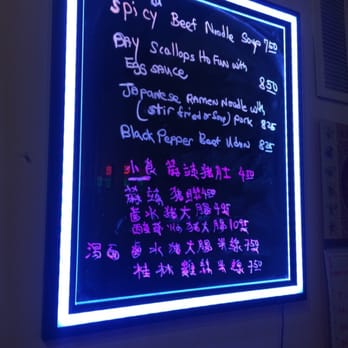 Spicy Beef Noodle Soup 7.50
Bay Scallops Ho Fun with
Egg Sauce
8.50
Japanese Ramen Noodle with
(stir fried or Soup) Pork 8.25
Black Pepper Beef Udon 8.25
小食 豬肚 4.50
豬 4.50
鹵水豬大腸 4.95
豬大腸 10.95
湯面 鹵水豬大腸米線 7.50
桂林雞絲米線 7.50